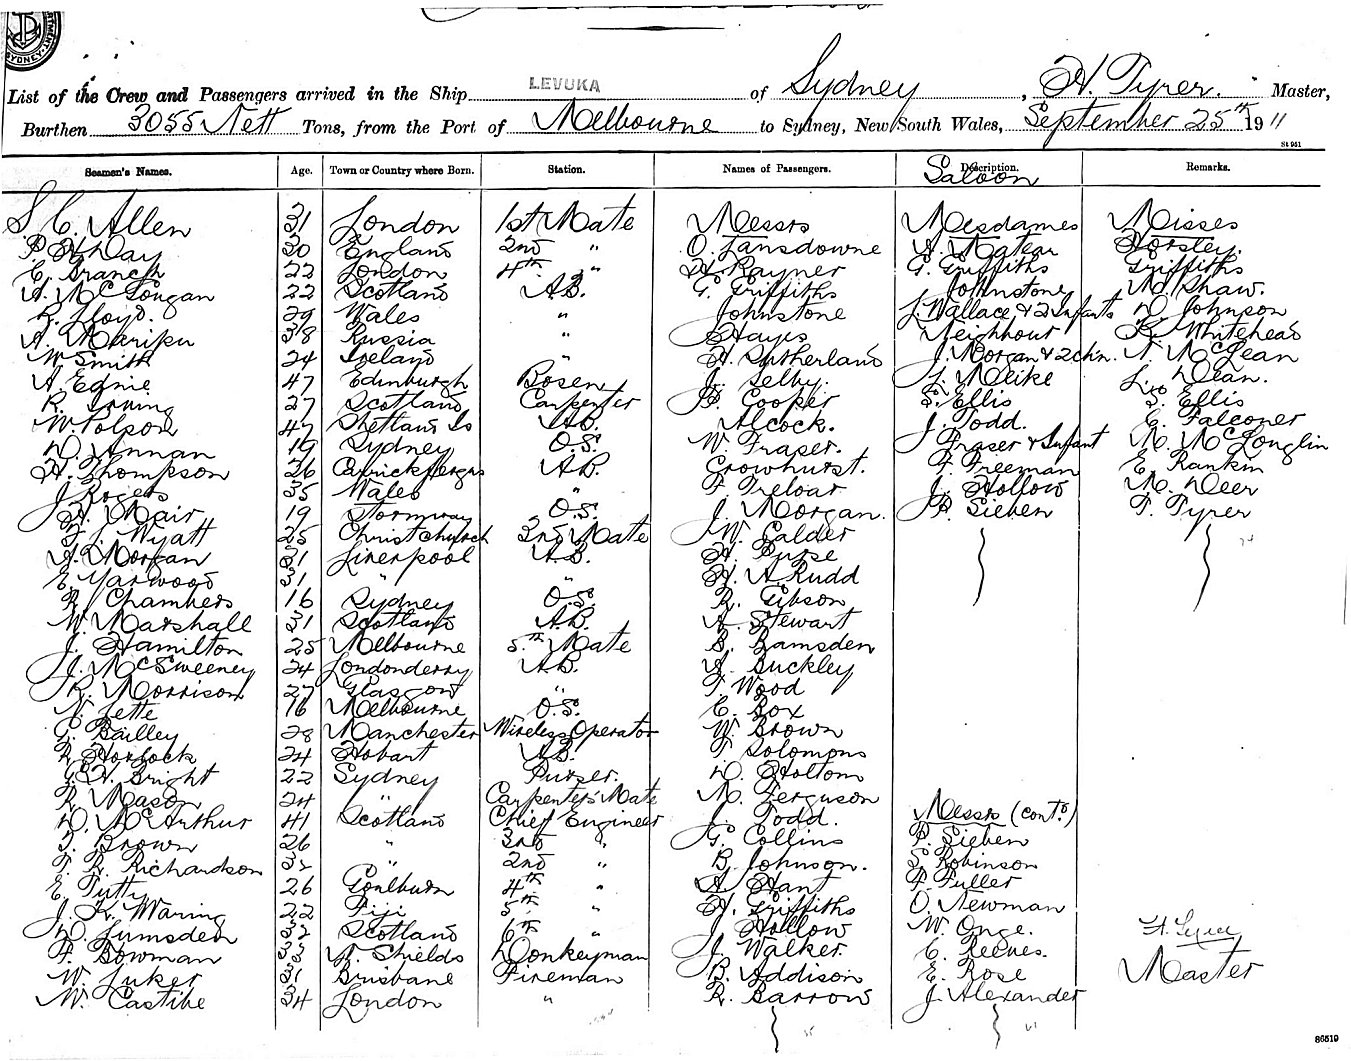 SYDNEY
List of the Crew and Passengers arrived in the Ship LEVUKA of Sydney, H. Tyrer. Master,
Burthen 3055 Nett Tons, from the Port of Melbourne to Sydney, New South Wales, September 25th 1911
St 951
Seamen's Names. Age. Town or Country where Born. Station. Names of Passengers. Description. Saloon Remarks.
S. C. Allen 31 London 1st Mate Messrs Mesdames Misses
P. H. Day 30 England 2nd " O. Lansdowne A. Matear Horsley.
E. Branch 22 London 4th " H. Rayner G. Griffiths Griffiths
A. McDougan 22 Scotland A.B. G. Griffiths Johnstone M. Shaw.
R. Lloyd. 29 Wales " Johnstone L. Wallace & 2 Infants D. Johnson
A. 38 Russia " Hayes Neighbour K. Whitehead
W Smith 24 Iceland " H. Sutherland J. Morgan & 2 chn. N. McLean
A. Eunie 47 Edinburgh Bosen J. Selby. J. Meike L. Dean.
R. Irving 27 Scotland Carpenter P. Cooper S. Ellis S. Ellis
W Polson 47 Shetland Is A.B. Alcock. J. Todd. E. Falconer
D. Annan 19 Sydney O.S. W. Fraser. Fraser & Infant M. McLouglin
H. Thompson 26 Carrickfergus A.B. Crowhurst. F. Freeman E. Rankin
J. Rogers 35 Wales " F. Treloar J. Hollow M. Deer
H. Mair 19 Stornway O.S. J. Morgan. P. Sieben F. Tyrer
F. J. Wyatt 25 Christchurch 3rd Mate W. Calder
A. Morgan 21 Liverpool A.B. H. Purse
E. Yarwood 31 " " H. A. Rudd
R. Chambers 16 Sydney O.S. R. Gibson
W. Marshall 31 Scotland A.B. A. Stewart
J. Hamilton 25 Melbourne 5th Mate S. Ramsden
J. McSweeney 24 Londonderry A.B. A. Buckley
R. Morrison 27 Glasgow " F. Wood
N. Lette 16 Melbourne O.S. E. Box
G. Bailley 28 Manchester Wireless Operator W. Brown
R. Horlock 24 Hobart A.B. F. Solomons
G. H. Bright 22 Sydney Purser. D. Holtom
R. Mason 24 " Carpenters Mate M. Ferguson
D. McArthur 41 Scotland Chief Engineer J. Todd. Messrs (contd)
T. Brown 26 " 3rd " G. Collins P. Sieben
T. R. Richardson 32 " 2nd " B. Johnson. S. Robinson
E. Tutty 26 Goulburn 4th " A. Hant F. Fuller
J. K. Waring 22 Fiji 5th " H. Griffiths O. Newman
D. Lumsden 32 Scotland 6th " J. Hollow W. Onge. H. Tyrer
F. Bowman 33 N. Shields Donkeyman J. Walker. C. Reeves. Master
W. Luker 31 Brisbane Fireman B. Addison E. Rose
W. Castibe 34 London " R. Barrow J. Alexander
86519